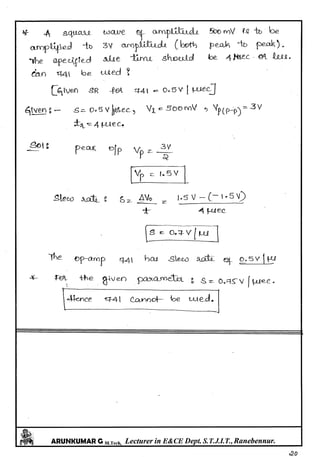 * A square wave of amplitude 500 mV is to be
amplified to 3V amplitude (both peak to peak).
The specified rise time should be 4 μsec or less.
Can 741 be used ?
[Given SR for 741 = 0.5V | μsec]
Given :- S = 0.5 V/μsec, V1 = 500mV , Vp(p-p) = 3V
tr = 4 μsec.
Sol : peak o/p Vp = 3V / 2
Vp = 1.5V
Slew rate : S = ΔVo / t = 1.5V - (-1.5V) / 4 μsec
S = 0.7 V / μs
The op-amp 741 has slew rate of 0.5V | μs
* For the given parameter : S = 0.75 V | μsec.
Hence 741 cannot be used.
ARUNKUMAR G M.Tech, Lecturer in E&CE Dept. S.T.J.I.T., Ranebennur.
20